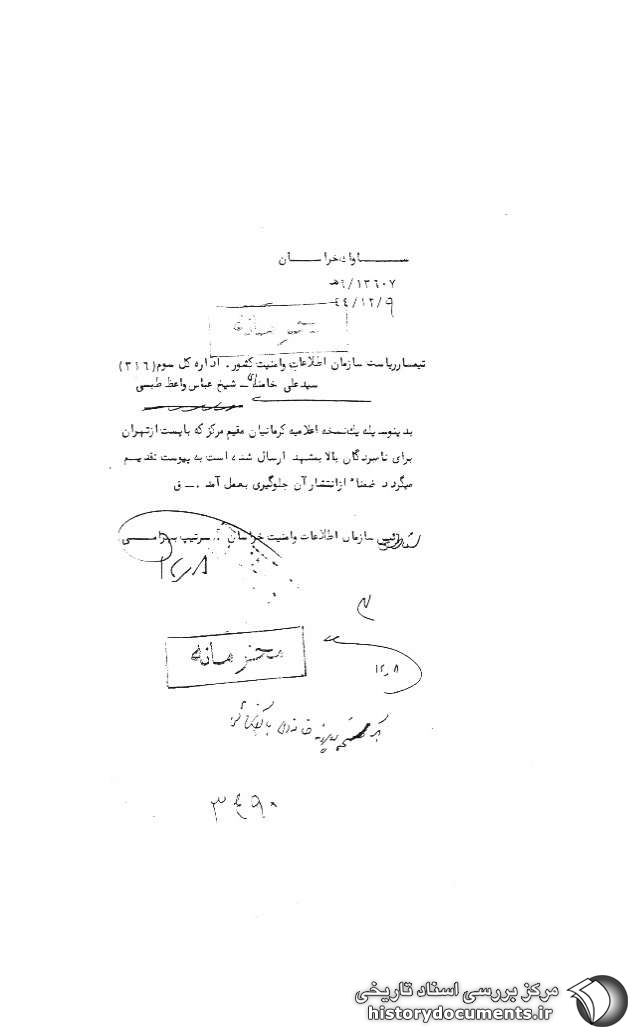 ســـاواك خراســـان
۱۳۶۰۷/۹هـ
۴۴/۱۲/۹
محرمانه
تیمسار ریاست سازمان اطلاعات و امنیت کشور . اداره کل سوم (۳۱۶)
سید علی خامنه‌ای ـ شیخ عباس واعظ طبسی
بدینوسیله یك نسخه اعلامیه کرمانیان مقیم مرکز که با پست از تهران
برای نامبردگان بالا بمشهد ارسال شده است به پیوست تقدیـــم
میگردد ضمناً از انتشار آن جلوگیری بعمل آمد . ــ ق
رئیس سازمان اطلاعات و امنیت خراسان . سرتیپ بهرامـــی
۱۲٫۸
محرمانه
۱۲٫۸
۳۴۹۰
مرکز بررسی اسناد تاریخی
historydocuments.ir